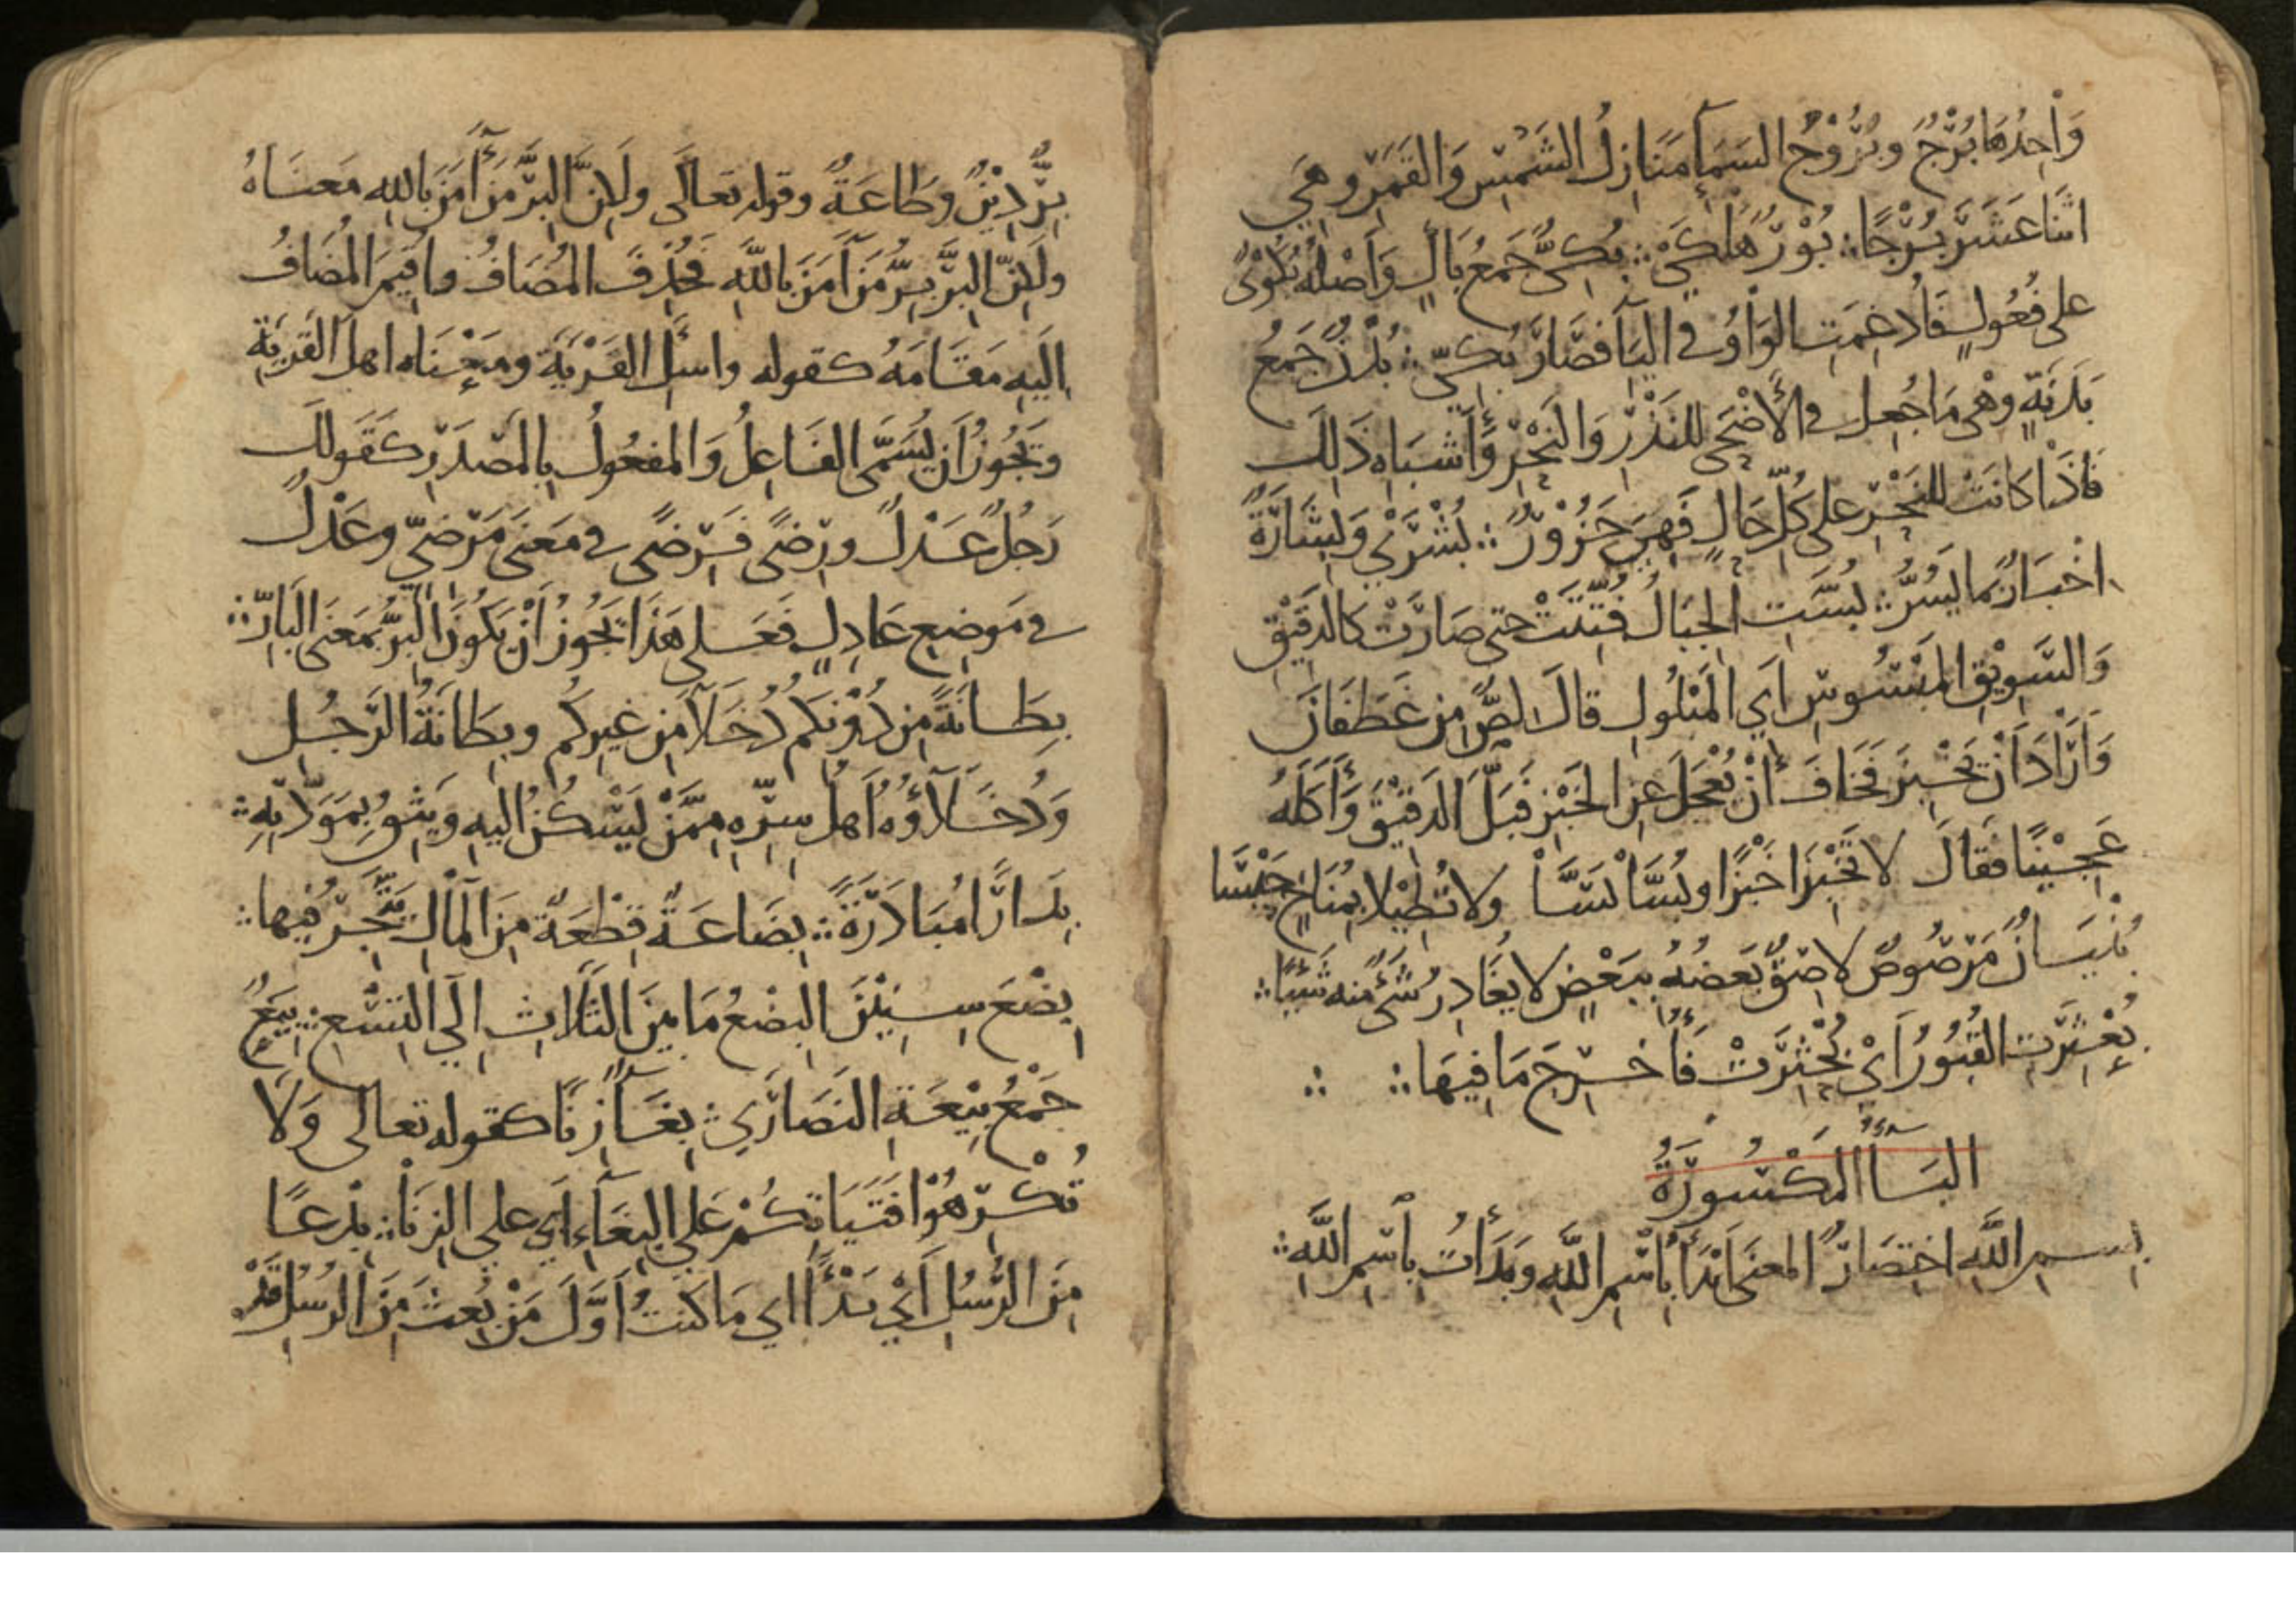 وَاحِدُهَا بُرْجٌ وَبُرُوْجُ السَّمَآءِ مَنَازِلُ الشَّمْسِ وَالقَمَرِ وهِيَ
اثنَا عَشَرَ بُرْجًا ∴ بُوْرٌ هَلْكَىْ ∴ بُكِىٌّ جَمعُ بَاكٍ وَأَصْلُهُ بُكُوْىٌ
على فُعُولٍ فَأُدغِمَتِ الوَاوُ فى اليَا فصَارَ بُكىّ ∴ بُدْنٌ جَمعُ
بَدَنَةٍ وهْى مَا جُعِلَ فى الأَضْحَى للنَذْرِ وَالنَحْرِ وَأَشبَاهِ ذَلِكَ
فَاذَا كَانَتْ للنَحْرِ على كُلِّ حَالٍ فَهِىَ جَزُوْرٌ ∴ بُشْرَىْ وَبِشَارَةٌ
اخْبَارٌ بمَا يَسُرُّ ∴ بُسَّتِ الجِبَالُ فُتِّتَتْ حتى صَارَتْ كالدَقِيْقِ
وَالسَّوِيْقِ المَبْسُوسِ اَي المَبْلُولِ قالَ لِصٌّ مِن غَطَفَانَ
وَأَرَادَ اَنْ يَخْبِزَ فَخَافَ أَنْ يُعْجَلَ عنِ الخَبْزِ فَبَلَّ الدَقِيْقَ وَأَكَلَهُ
عَجِيْنًا فقَالَ لا تَخْبِزَا خَبْزًا وبُسَّا بَسَّا ولا تُطِيْلا بِمُنَاخٍ حَبْسَا
بُنْيَانٌ مَرْصُوصٌ لاصِقٌ بَعضُهُ بِبَعْضٍ لا يُغَادِرُ شَىْءٌ منه شَيْئًا ∴
بُعْثِرَتِ القُبُورُ اَيْ بُحْثِرَتْ فَأُخْرِجَ مَا فِيهَا ∴ ∴
البَآءُ المَكْسُورَةُ
بِسمِ اللَّهِ اختِصَارٌ المعنَى اَبْدَأُ بِاسْمِ اللَّهِ وبَدَأتُ بِاسْمِ اللَّهِ ∴
بِرٌّ دِيْنٌ وطَاعَةٌ وقوله تعالَى ولَكِنَّ البِرَّ مَنْ آمَنَ بِاللهِ مَعنَاهُ
ولَكِنّ البِرَّ بِرُّ مَنْ آمَنَ بِاللهِ فَحُذِفَ المُضَافُ واُقِيمَ المُضَافُ
اِلَيهِ مَقَامَهُ كقوله واسأَلِ القَرْيَةَ ومَعْنَاه اهلَ القَريَةِ
وَيَجُوزُ اَنْ يُسَمَّى الفَاعِلُ وَالمفعُولُ بِالمَصْدَرِ كَقَولِكَ
رَجُلٌ عَدْلٌ ورِضًى فَرِضًى فى مَعنَى مَرْضِىّ وعَدْلٌ
فى مَوضِعِ عَادِلٍ فَعَلى هَذَا يَجُوزُ أَنْ يَكُونَ البِرُّ بمَعنَى البَارِّ ∴
بِطَانَةً مِن دُوْنِكُم دُخَلآءَ مِن غَيرِكُم وبِطَانَةُ الرَّجُلِ
وَدُخَلآؤُهُ اَهلُ سِرِّهِ مِمَّنْ يَسْكُنُ اِلَيهِ وَيَثِقُ بِمَوَدَّتِهِ ∴
بِدَارًا مُبَادَرَةً ∴ بِضَاعَةٌ قِطْعَةٌ مِنَ المَالِ يُتَّجَرُ فِيها ∴
بِضْعَ سِنِيْنَ البِضْعُ مَا بَينَ الثَلَاثِ اِلَي التِسْعِ ∴ بِيَعٌ
جَمْعُ بِيْعَةِ النَصَارَي ∴ بِغَآءٌ زِنًا كقوله تعالى وَلَا
تُكْرِهُوْا فَتَيَاتِكُمْ عَلَي البِغَآءِ اَي علي الزِنَا ∴ بِدْعًا
مِنَ الرُّسُلِ اَيْ بَدْأً اي مَا كنتُ اَوَّلَ مَنْ بُعِثَ مِنَ الرُسُلِ قَدْ